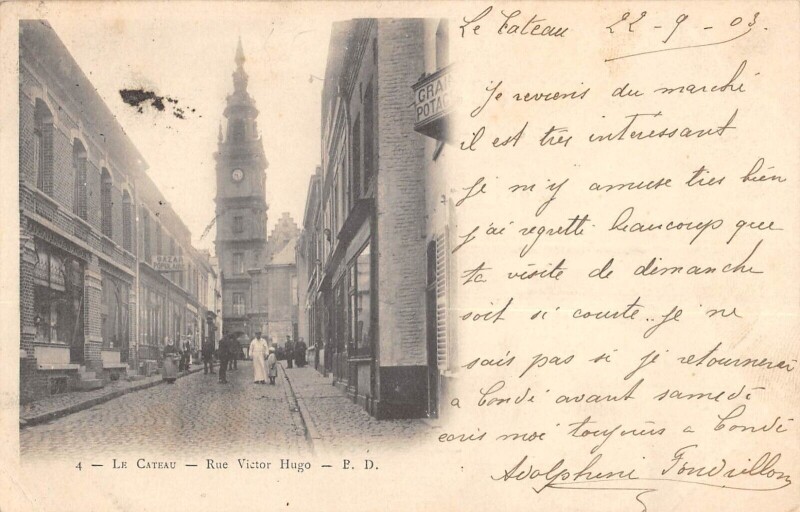 Le Cateau 22-9-03.
Je reviens du marché
il est très interessant
je m'y amuse très bien
j'ai regretté beaucoup que
ta visite de dimanche
soit si courte. je ne
sais pas si je retournerai
a Condé avant samedi
ecris moi toujours a Condé
Adolphine
GRAIN
POTA
BAZAR
4 — LE CATEAU — Rue Victor Hugo — P. D.